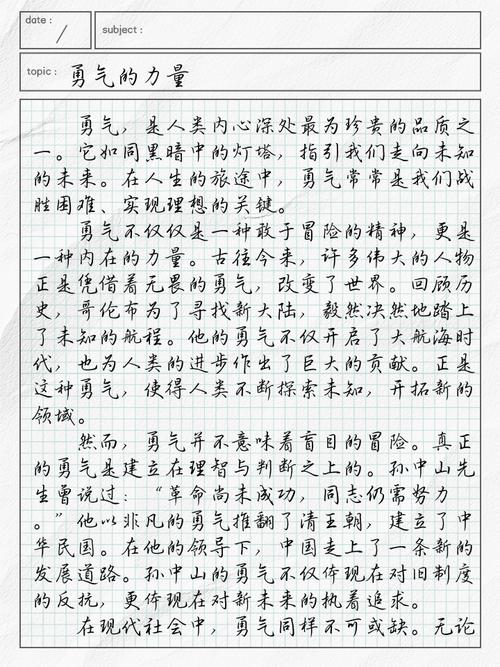 date :
/
subject :
topic : 勇气的力量
勇气，是人类内心深处最为珍贵的品质之
一。它如同黑暗中的灯塔，指引我们走向未知
的未来。在人生的旅途中，勇气常常是我们战
胜困难、实现理想的关键。
勇气不仅仅是一种敢于冒险的精神，更是
一种内在的力量。古往今来，许多伟大的人物
正是凭借着无畏的勇气，改变了世界。回顾历
史，哥伦布为了寻找新大陆，毅然决然地踏上
了未知的航程。他的勇气不仅开启了大航海时
代，也为人类的进步作出了巨大的贡献。正是
这种勇气，使得人类不断探索未知，开拓新的
领域。
然而，勇气并不意味着盲目的冒险。真正
的勇气是建立在理智与判断之上的。孙中山先
生曾说过：“革命尚未成功，同志仍需努力
。”他以非凡的勇气推翻了清王朝，建立了中
华民国。在他的领导下，中国走上了一条新的
发展道路。孙中山的勇气不仅体现在对旧制度
的反抗，更体现在对新未来的执着追求。
在现代社会中，勇气同样不可或缺。无论